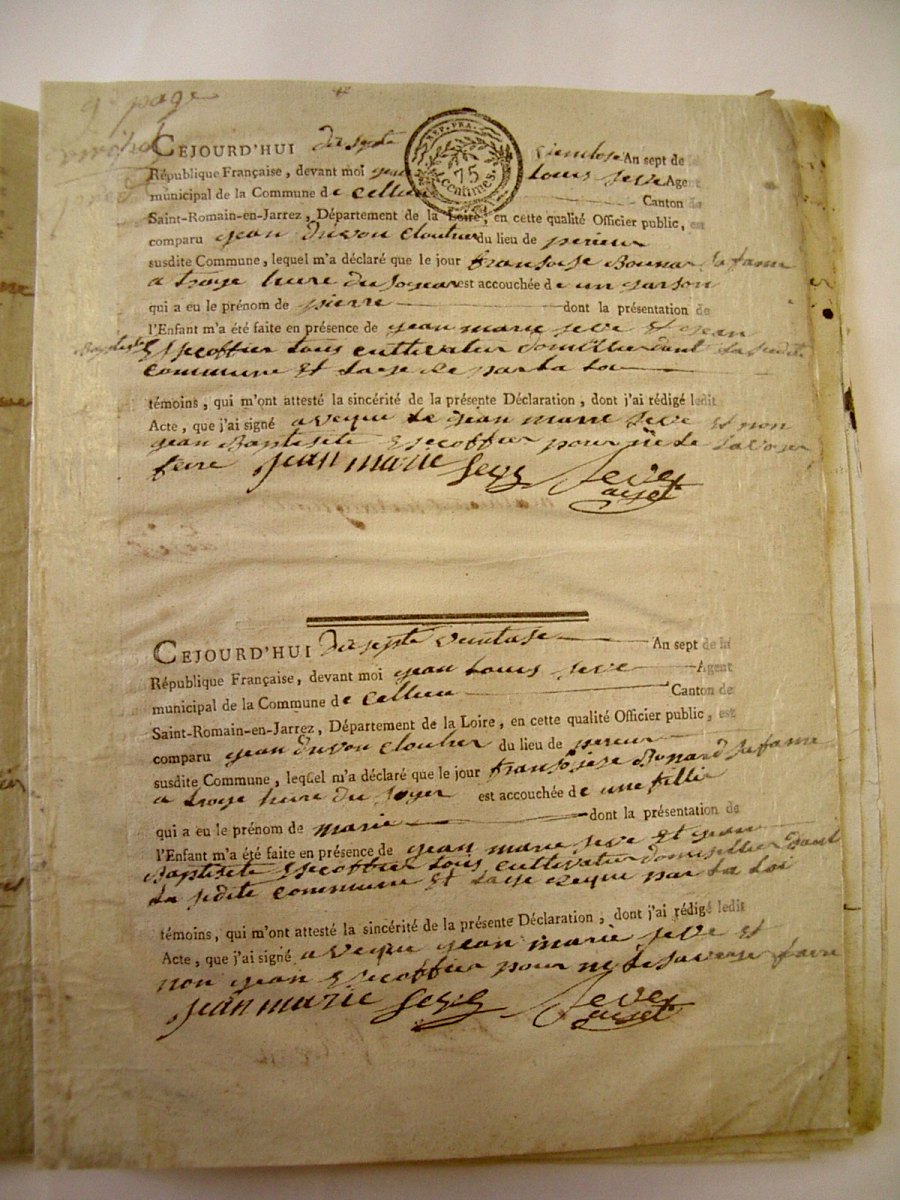 9e page
CEJOURD'HUI dix septe ventose An sept de la
RÉP. FRA.
75
centimes.
République Française, devant moi jean Louis seve Agent
municipal de la Commune de Cellieu Canton de
Saint-Romain-en-Jarrez, Département de la Loire, en cette qualité Officier public, est
comparu jean drivon cloutier du lieu de perieur
susdite Commune, lequel m'a déclaré que le jour fransoise Bonnar sa fame
a troye heure du soyer est accouchée de un garson
qui a eu le prénom de pierre dont la présentation de
l'Enfant m'a été faite en présence de jean marie seve Et jean
Baptiste Escoffier tous cultivateur domicillier dant la sudite
commune Et laije par la loi
témoins, qui m'ont attesté la sincérité de la présente Déclaration, dont j'ai rédigé ledit
Acte, que j'ai signé aveque le jean marie seve et non
jean Baptisete Escoffier pour ne le savoyer
faire jean marie seve Seve
aget
CEJOURD'HUI dix septe ventose An sept de la
République Française, devant moi jean Louis seve Agent
municipal de la Commune de Cellieu Canton de
Saint-Romain-en-Jarrez, Département de la Loire, en cette qualité Officier public, est
comparu jean drivon cloutier du lieu de perieur
susdite Commune, lequel m'a déclaré que le jour fransoise Bonnard sa fame
a troye heure du soyer est accouchée de une fillie
qui a eu le prénom de marie dont la présentation de
l'Enfant m'a été faite en présence de jean marie seve Et jean
Baptisete Escoffier tous cultivateur domisillier dant
la sudite commune Et laije reque par la loi
témoins, qui m'ont attesté la sincérité de la présente Déclaration, dont j'ai rédigé ledit
Acte, que j'ai signé aveque jean marie seve et
non jean Escoffier pour ne le savoyer faire
jean marie seve Seve
aget